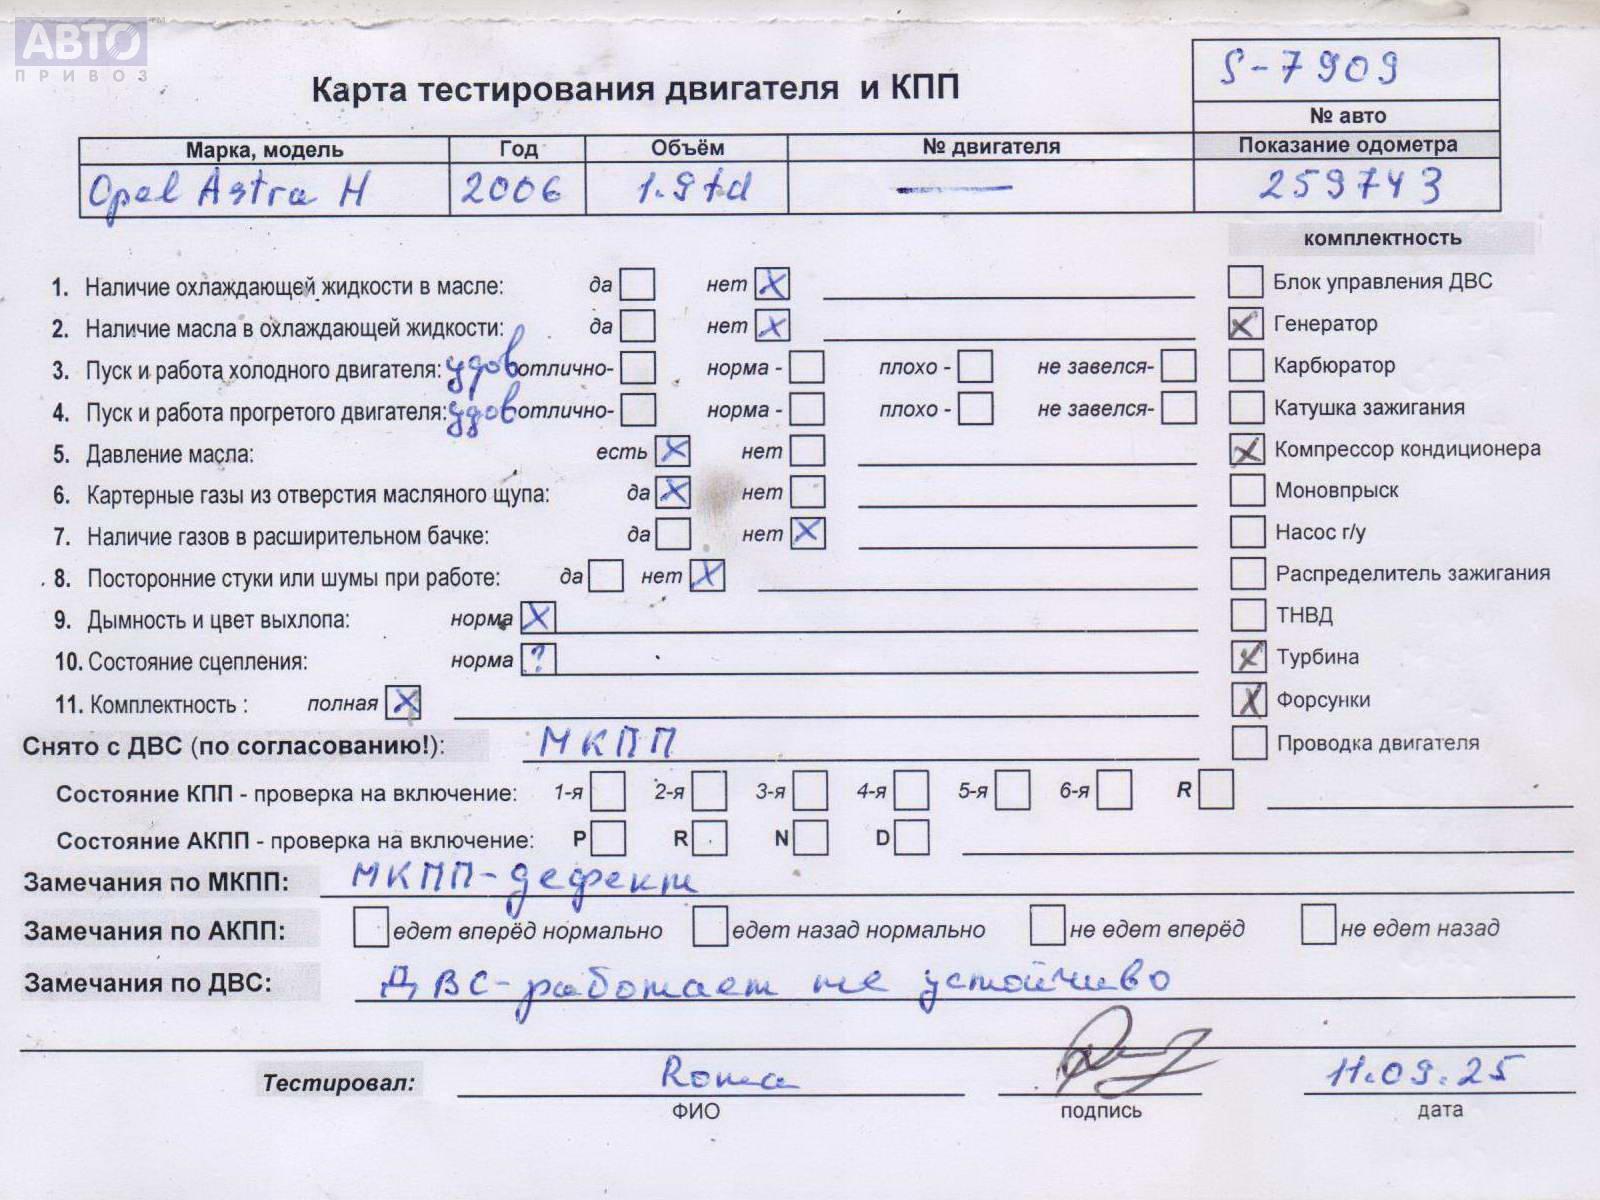 АВТО
ПРИВОЗ
S-7909
Карта тестирования двигателя и КПП
№ авто
Марка, модель Год Объём № двигателя Показание одометра
Opel Astra H 2006 1.9td — 259743
комплектность
1. Наличие охлаждающей жидкости в масле: да нет X Блок управления ДВС
2. Наличие масла в охлаждающей жидкости: да нет X X Генератор
3. Пуск и работа холодного двигателя: удов отлично- норма - плохо - не завелся- Карбюратор
4. Пуск и работа прогретого двигателя: удов отлично- норма - плохо - не завелся- Катушка зажигания
5. Давление масла: есть X нет X Компрессор кондиционера
6. Картерные газы из отверстия масляного щупа: да X нет Моновпрыск
7. Наличие газов в расширительном бачке: да нет X Насос г/у
8. Посторонние стуки или шумы при работе: да нет X Распределитель зажигания
9. Дымность и цвет выхлопа: норма X ТНВД
10. Состояние сцепления: норма ? X Турбина
11. Комплектность : полная X X Форсунки
Снято с ДВС (по согласованию!): МКПП Проводка двигателя
Состояние КПП - проверка на включение: 1-я 2-я 3-я 4-я 5-я 6-я R
Состояние АКПП - проверка на включение: P R N D
Замечания по МКПП: МКПП-дефект
Замечания по АКПП: едет вперёд нормально едет назад нормально не едет вперёд не едет назад
Замечания по ДВС: ДВС-работает не устойчиво
Тестировал: Roma 11.09.25
ФИО подпись дата